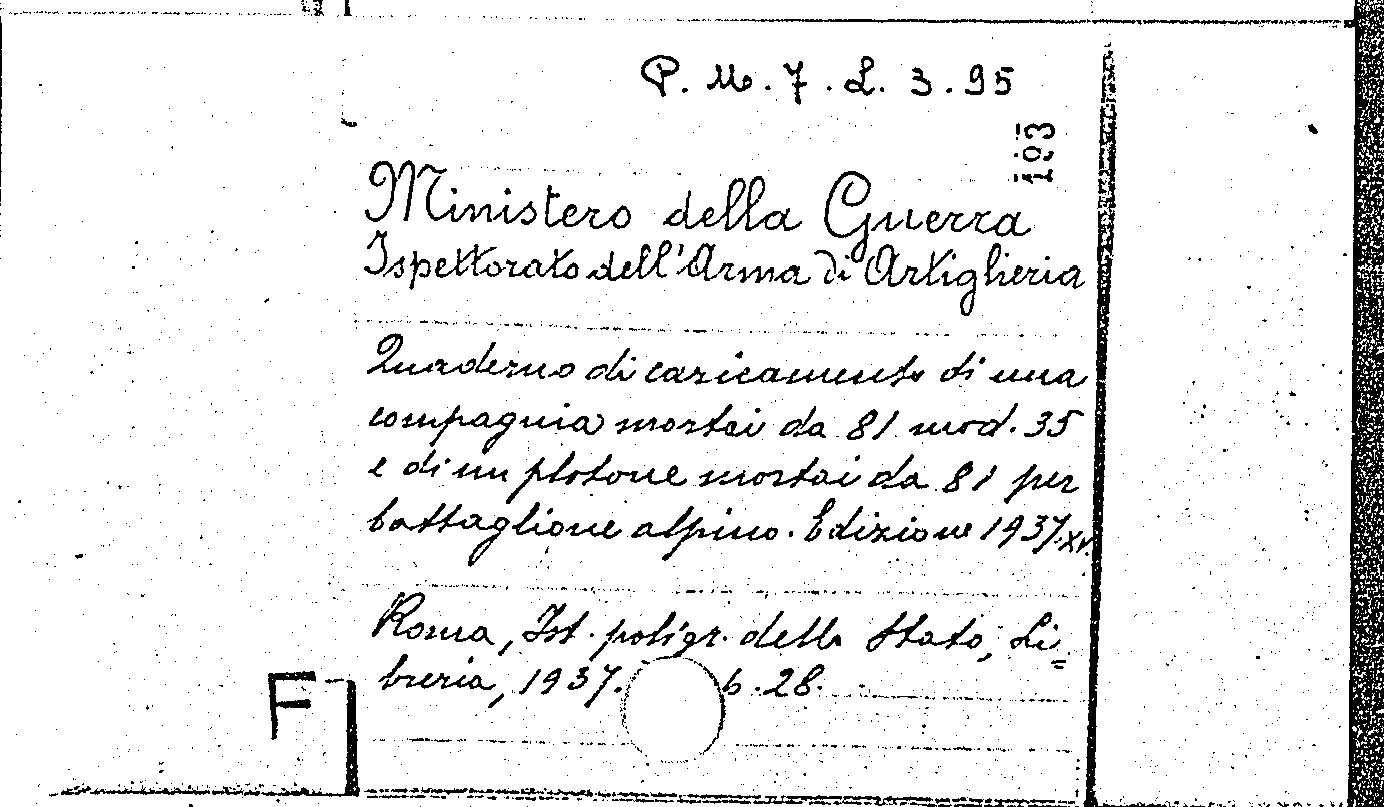 P. M. 7. L. 3.95
193
Ministero della Guerra
Ispettorato dell'Arma di Artiglieria
Quaderno di caricamento di una
compagnia mortai da 81 mod. 35
e di un plotone mortai da 81 per
battaglione alpino. Edizione 1937.XV.
Roma, Ist. poligr. dello Stato, Li=
breria, 1937. p. 28.
F